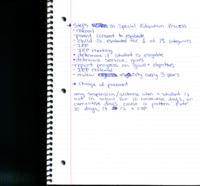 Steps in Special Education Process
- referral
- parent consent to evaluate
- child is evaluated for 1 of 13 categories
- IEP
- IEP meeting
- determine if student is eligible
- determine service, goals
- report progress on goals + objectives
- IEP reviewed
- review every 3 years
change of placement
any suspension/ when a student is
not in school for 10 consecutive days, or
days cause a pattern
10 days, it is a COP